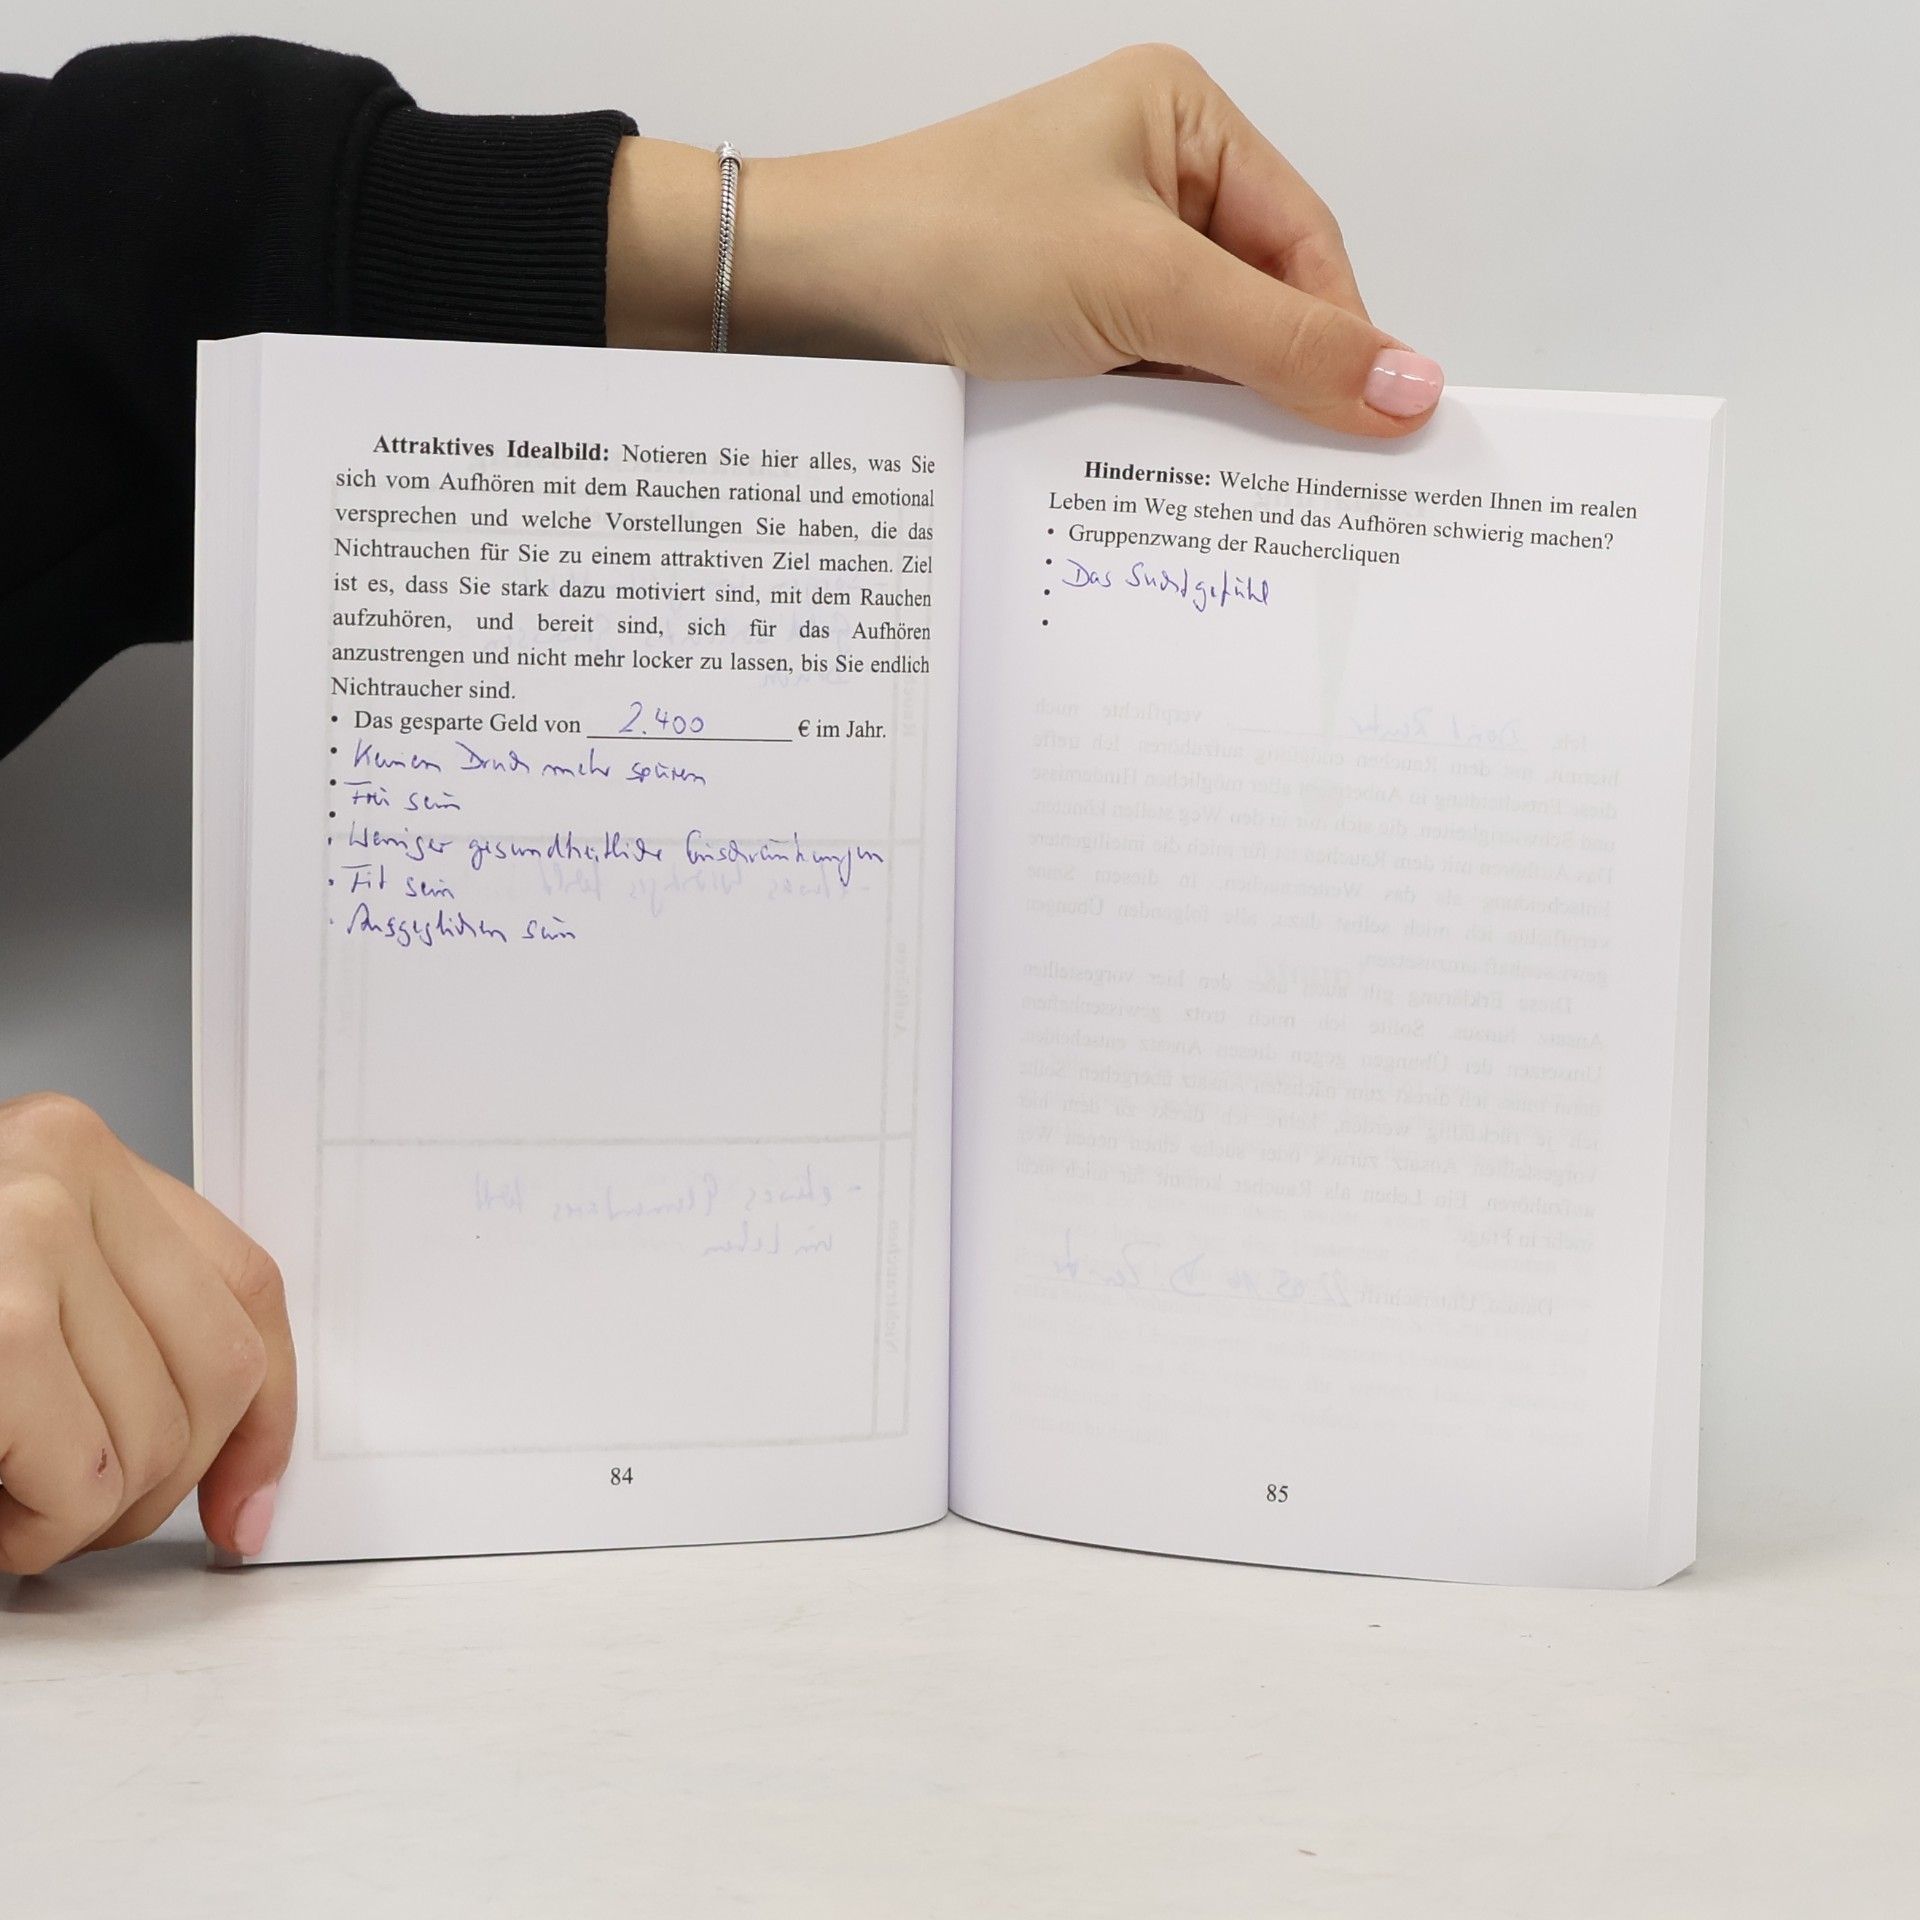 Attraktives Idealbild: Notieren Sie hier alles, was Sie
sich vom Aufhören mit dem Rauchen rational und emotional
versprechen und welche Vorstellungen Sie haben, die das
Nichtrauchen für Sie zu einem attraktiven Ziel machen. Ziel
ist es, dass Sie stark dazu motiviert sind, mit dem Rauchen
aufzuhören, und bereit sind, sich für das Aufhören
anzustrengen und nicht mehr locker zu lassen, bis Sie endlich
Nichtraucher sind.
• Das gesparte Geld von 2.400 € im Jahr.
• Keinen Druck mehr spüren
• Frei sein
•
• Weniger gesundheitliche Einschränkungen
• Fit sein
• Ausgeglichen sein
84
Hindernisse: Welche Hindernisse werden Ihnen im realen
Leben im Weg stehen und das Aufhören schwierig machen?
• Gruppenzwang der Rauchercliquen
• Das Suchtgefühl
•
•
85